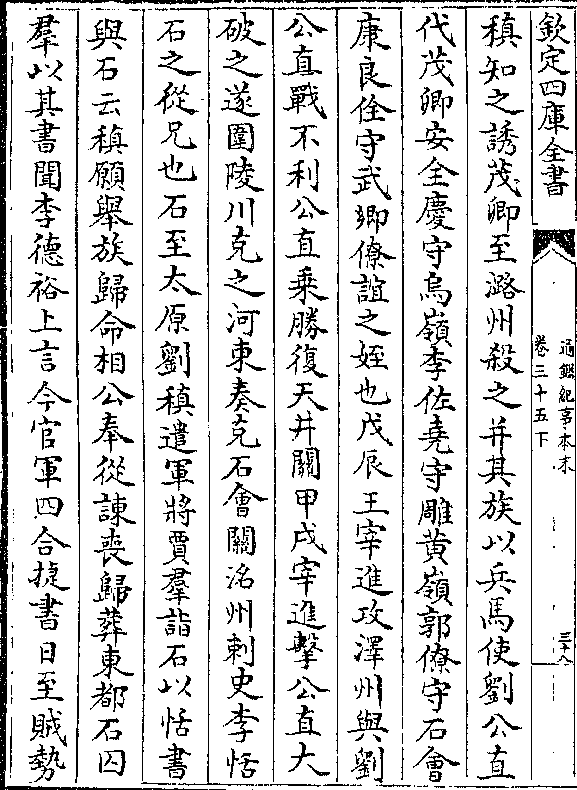 欽定四庫全書
通鑑紀事本末
卷三十五下
三十八
稹知之誘茂卿至潞州殺之并其族以兵馬使劉公直
代茂卿安全慶守烏嶺李佐堯守雕黃嶺郭僚守石會
康良佺守武鄉僚誼之姪也戊辰王宰進攻澤州與劉
公直戰不利公直乗勝復天井關甲戌宰進擊公直大
破之遂圍陵川克之河東奏克石會關洺州刺史李恬
石之從兄也石至太原劉稹遣軍將賈羣詣石以恬書
與石云稹願舉族歸命相公奉從諫喪歸葬東都石囚
羣以其書聞李德裕上言今官軍四合捷書日至賊勢